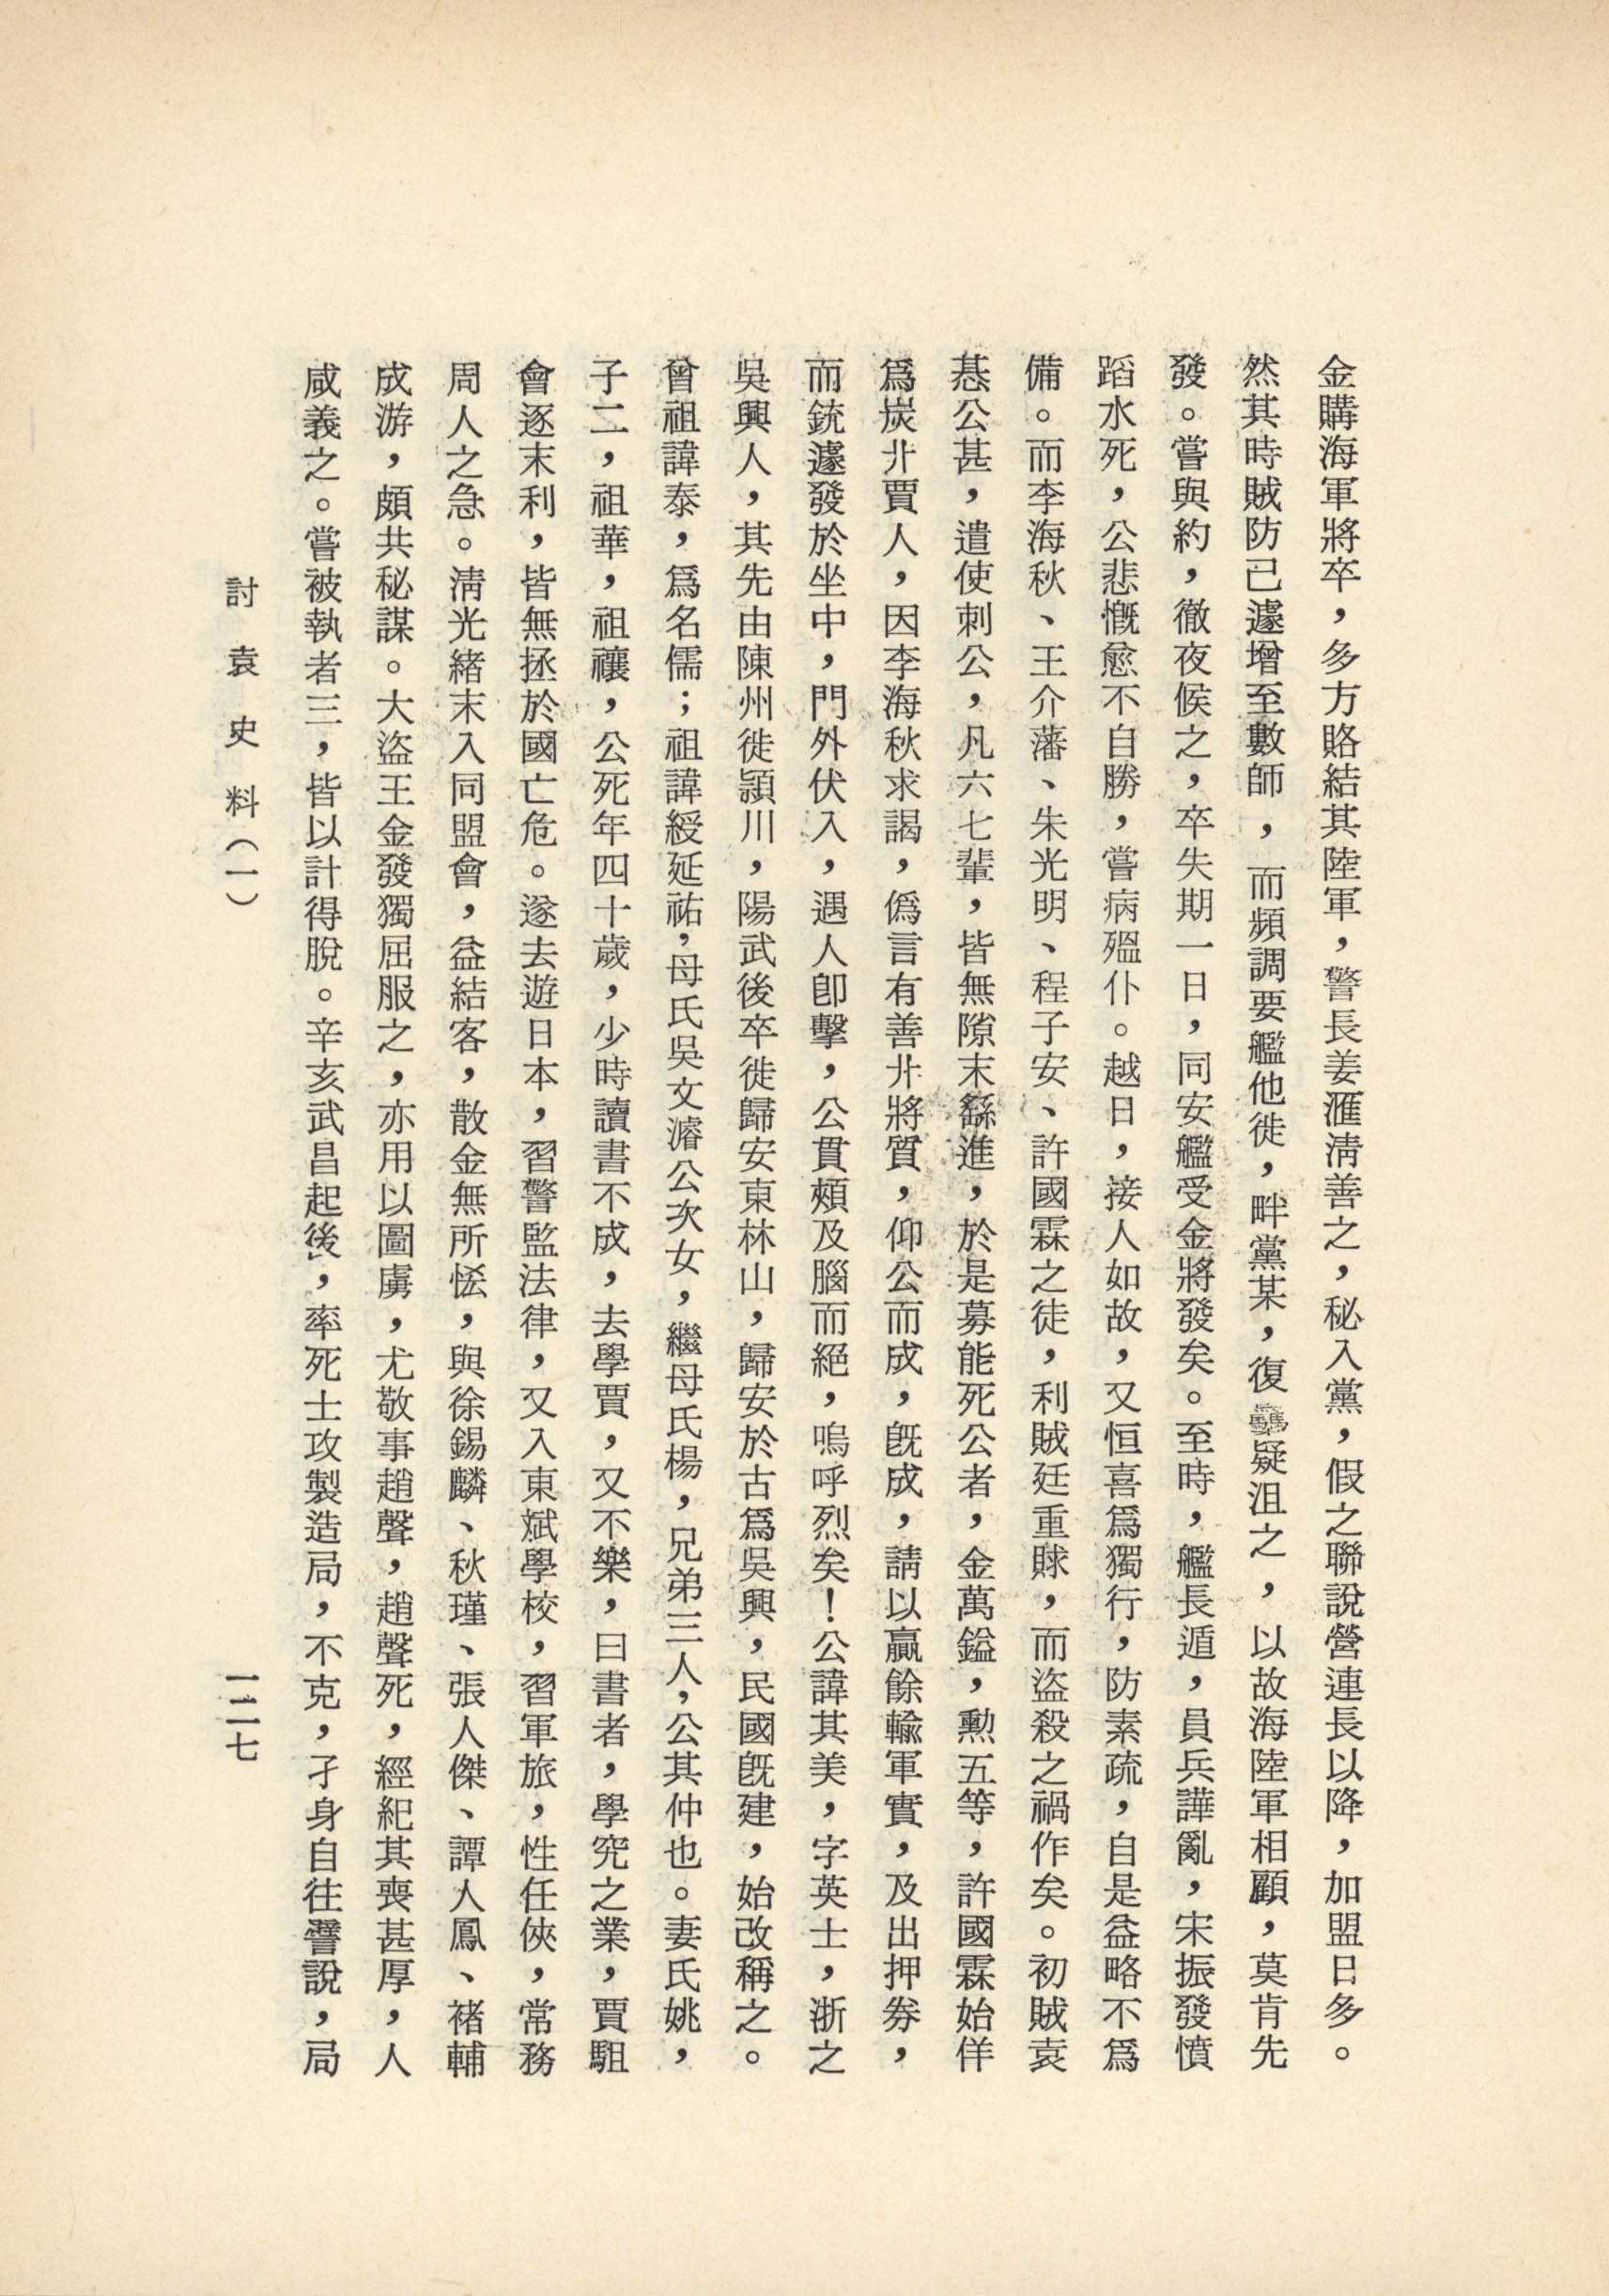 金購海軍將卒，多方賂結其陸軍，警長姜滙淸善之，秘入黨，假之聯說營連長以降，加盟日多。
然其時賊防已遽增至數師，而頻調要艦他徙，畔黨某，復疑沮之，以故海陸軍相顧，莫肯先
發。嘗與約，徹夜候之，卒失期一日，同安艦受金將發矣。至時，艦長遁，員兵譁亂，宋振發憤
蹈水死，公悲慨愈不自勝，嘗病殟仆。越日，接人如故，又恒喜爲獨行，防素疏，自是益略不爲
備。而李海秋、王介藩、朱光明、程子安、許國霖之徒，利賊廷重賕，而盜殺之禍作矣。初賊袁
惎公甚，遣使刺公，凡六七輩，皆無隙末繇進，於是募能死公者，金萬鎰，勳五等，許國霖始佯
爲炭丱賈人，因李海秋求謁，僞言有善丱將質，仰公而成，旣成，請以贏餘輸軍實，及出押劵，
而銃遽發於坐中，門外伏入，遇人卽擊，公貫頰及腦而絕，嗚呼烈矣！公諱其美，字英士，浙之
吳興人，其先由陳州徙潁川，陽武後卒徙歸安東林山，歸安於古爲吳興，民國旣建，始改稱之。
曾祖諱泰，爲名儒；祖諱綬延祐，母氏吳文濬公次女，繼母氏楊，兄弟三人，公其仲也。妻氏姚，
子二，祖華，祖禳，公死年四十歲，少時讀書不成，去學賈，又不樂，曰書者，學究之業，賈駔
會逐末利，皆無拯於國亡危。遂去遊日本，習警監法律，又入東斌學校，習軍旅，性任俠，常務
周人之急。淸光緒末入同盟會，益結客，散金無所恡，與徐錫麟、秋瑾、張人傑、譚人鳳、褚輔
成游，頗共秘謀。大盜王金發獨屈服之，亦用以圖虜，尤敬事趙聲，趙聲死，經紀其喪甚厚，人
咸義之。嘗被執者三，皆以計得脫。辛亥武昌起後，率死士攻製造局，不克，孑身自往讋說，局
討袁史料（一）
一二七